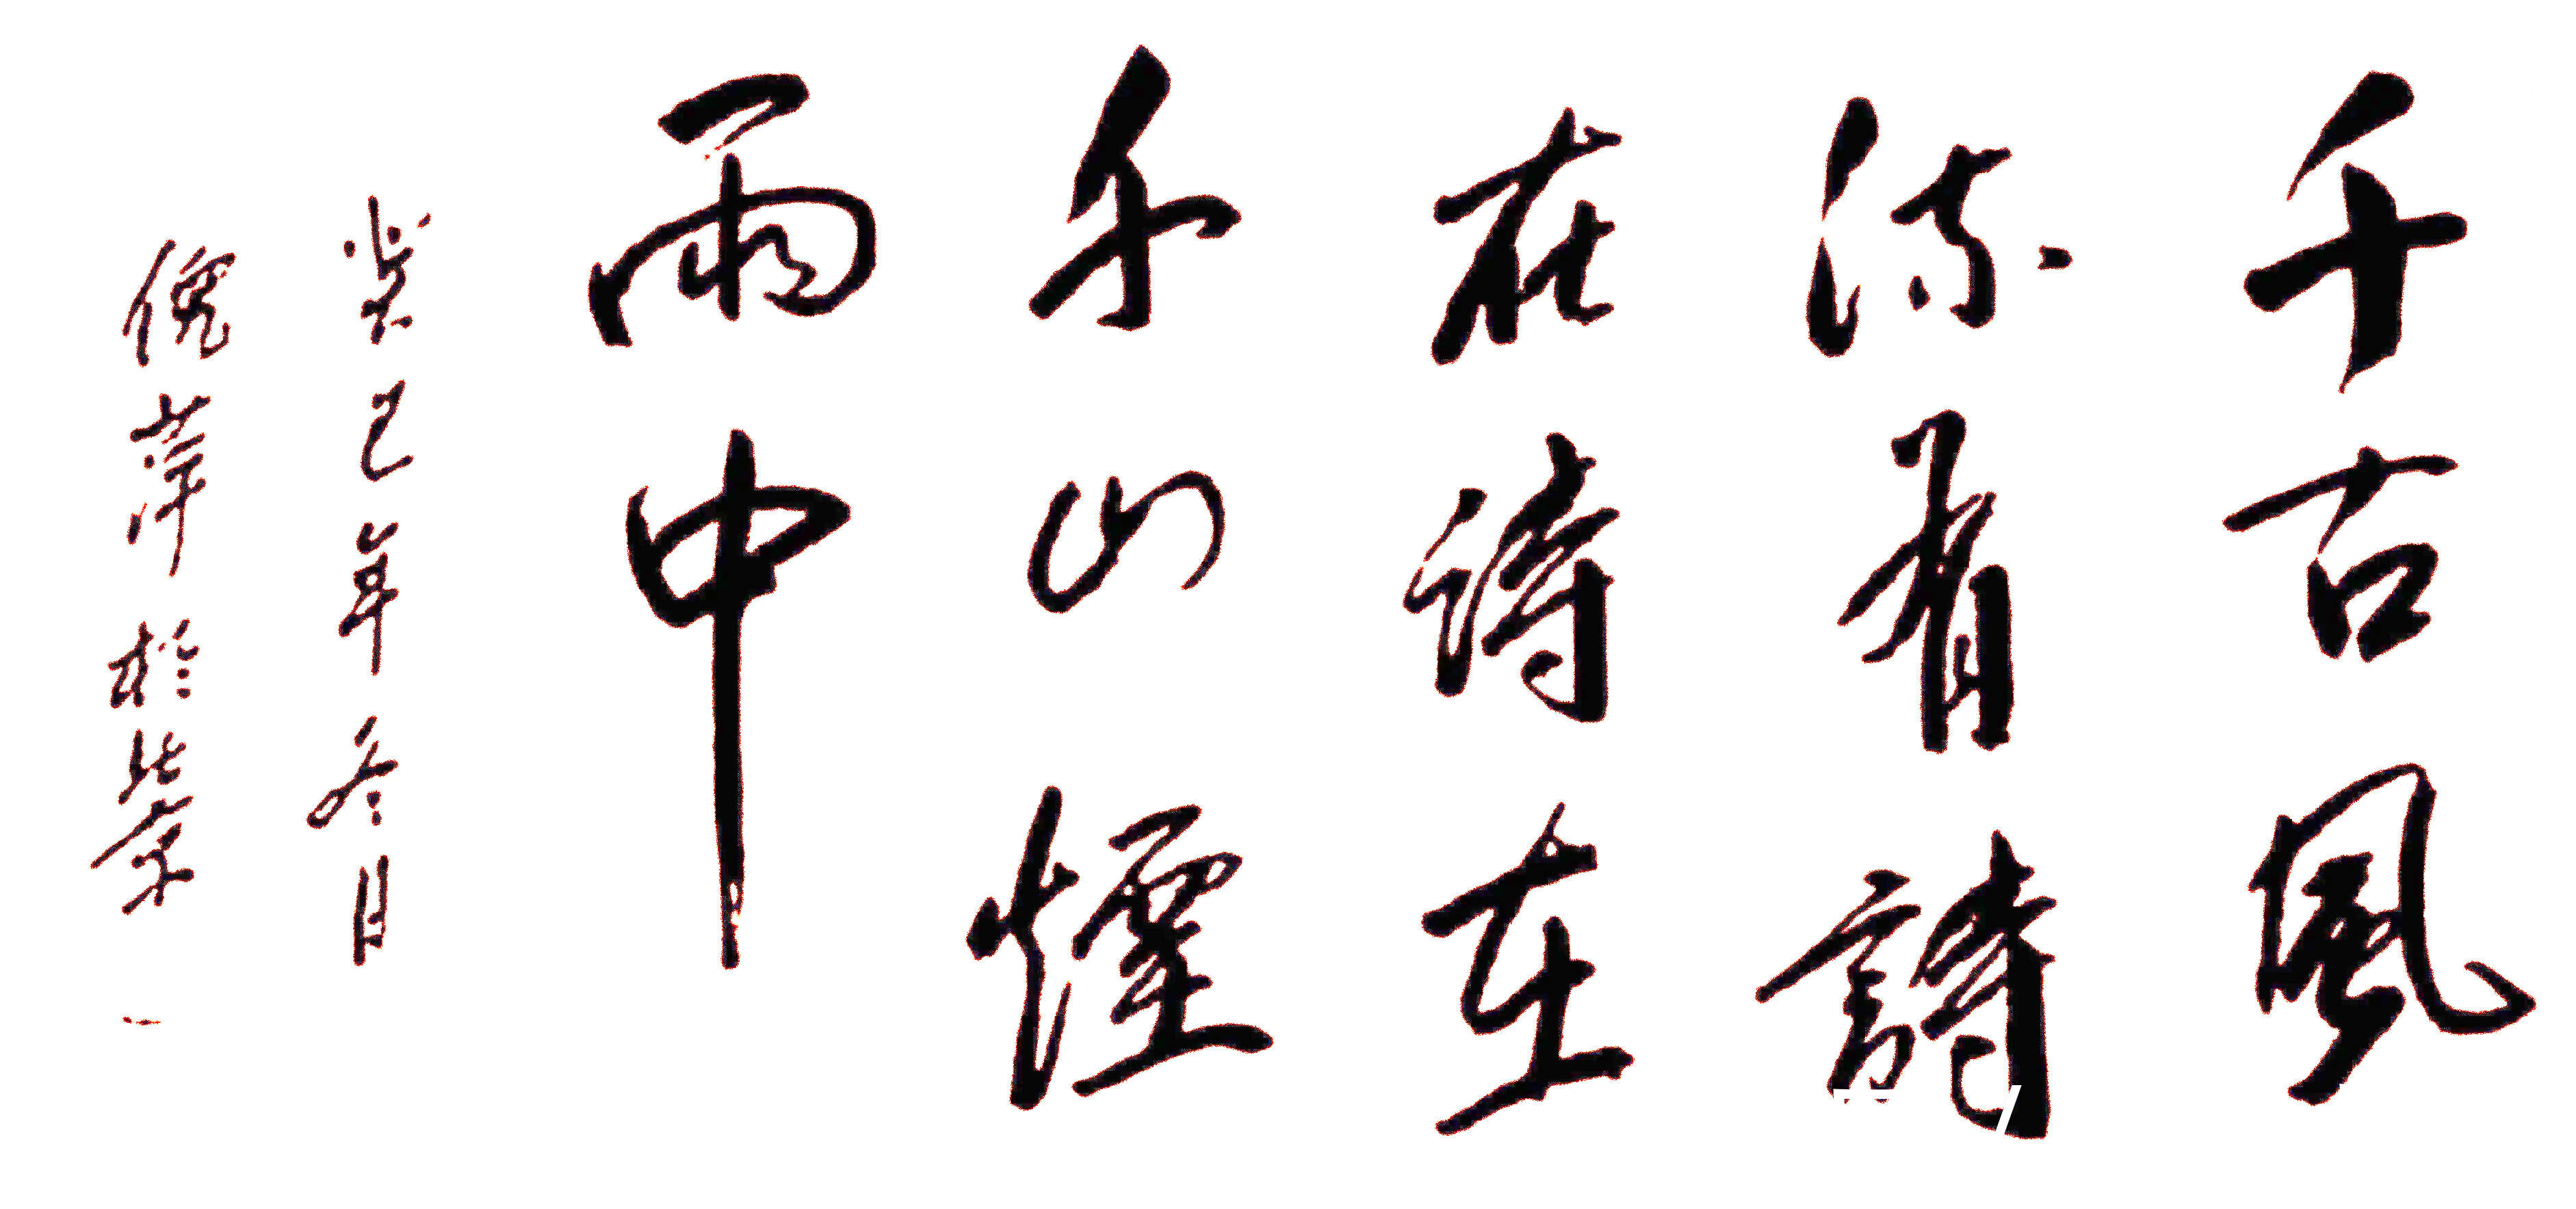 千古風
流有詩
在詩在
千山煙
雨中
癸巳年冬日
倪萍於北京